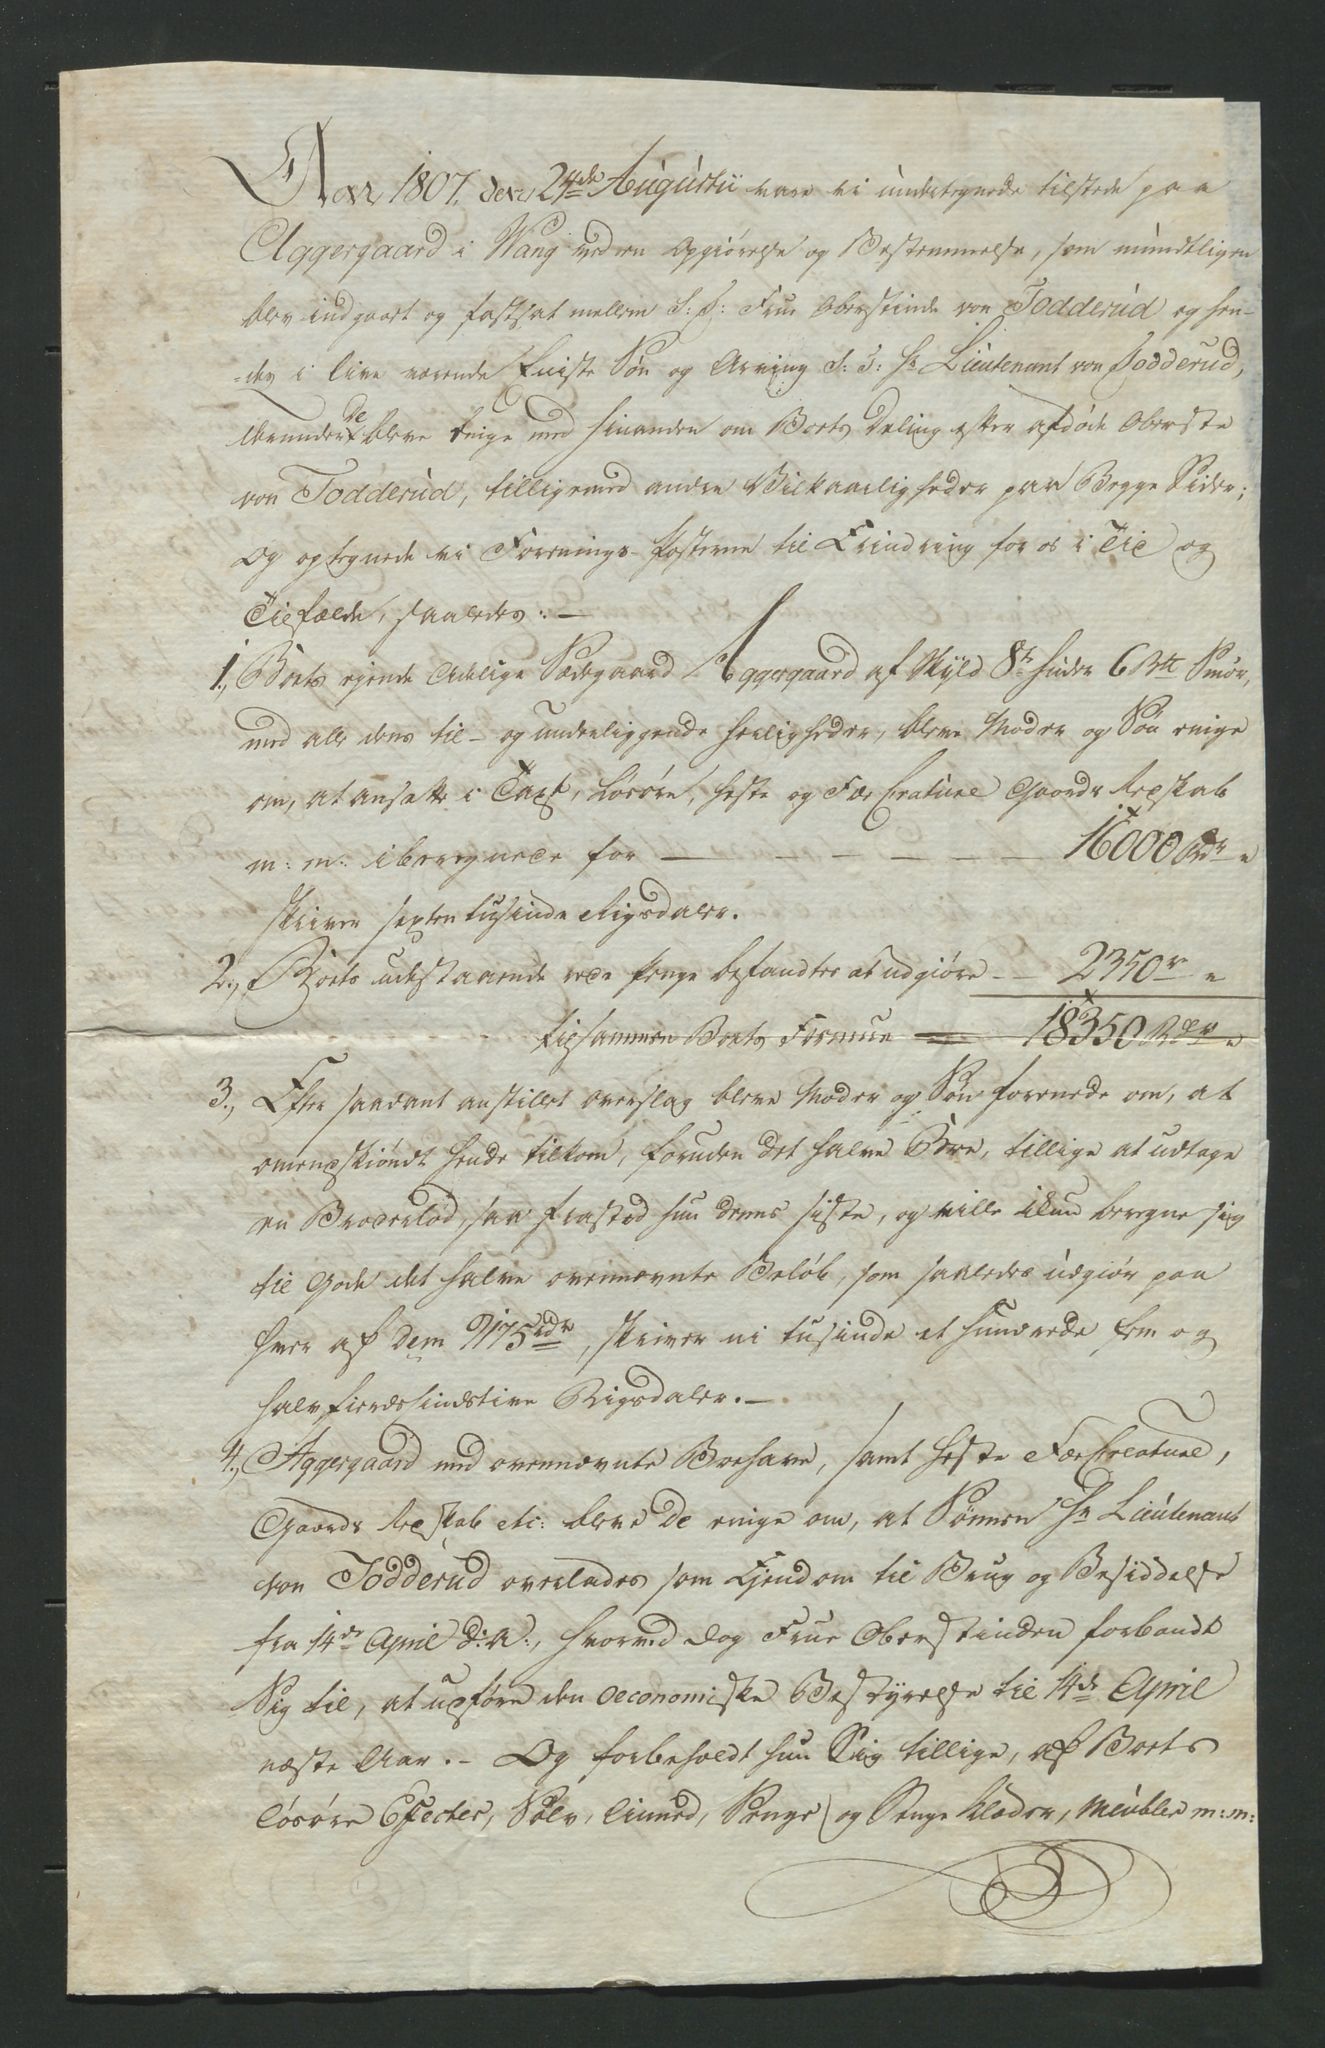 Aar 1807. den 24de Augustii vare vi undertegnede tilstede paa
Aggergaard i Wang ved en Opgiörelse og Bestemmelse, som mundtligen
blev indgaaet og fastsat mellem S: T: Frue Oberstinde von Todderud og hen-
-des i live værende Eeniste Sön og Arving S: T: Hr Lieutenant von Todderud,
de bleve Enige med hinanden om Boets Deling efter afdöde Oberste
von Todderud, tilligemed andre Vilkaarligheder paa Begge Sider;
Og optegnede vi Forenings-Posterne til Erindring for os i Tid og
Tilfælde, saaledes: —
1., Boets ejende Adelige Sædegaard Aggergaard af Skyld 8te Huder 6 Btt Smör,
med alle dens til- og underliggende Herligheder, bleve Moder og Sön enige
om, at ansætte i Taxt, Lösöre, Heste og Fæe Creature Gaards Redskab
m: m: iberegnede for — — — — — — 16000 Rdr "
skriver sexten tusinde Rigsdaler.
2., Boets udestaaende rede Penge befandtes at udgiöre - - 2350 r "
tilsammen Boets Formue = 18350 Rdr "
3., Efter saadant anstillet Overslag bleve Moder og Sön forenede om, at
omendskiöndt hende tilkom, foruden det halve Boe, tillige at udtage
en Broderlod, saa frastod hun denne sidste, og ville ikun beregne sig
til Gode det halve ovennævnte Belöb, som saaledes udgiör paa
hver af dem 9175 rdr, skriver ni tusinde et hundrede fem og
halvfierdesindstive Rigsdaler. —
4., Aggergaard med ovennævnte Boehave, samt Heste Fæe Creature,
Gaards Redskab etc: bleve De enige om, at Sönnen Hr Lieutenant
von Todderud overlades som Ejendom til Brug og Besiddelse
fra 14de April d: A:, hvorved dog Frue Oberstinden forbandt
Sig til, at udföre den oeconomiske Bestyrelse til 14de April
næste Aar. - Og forbeholdt hun Sig tillige, af Boets
Lösöre Effecter, Sölv, Linned, Senge og Senge Klæder, Meubler m: m: